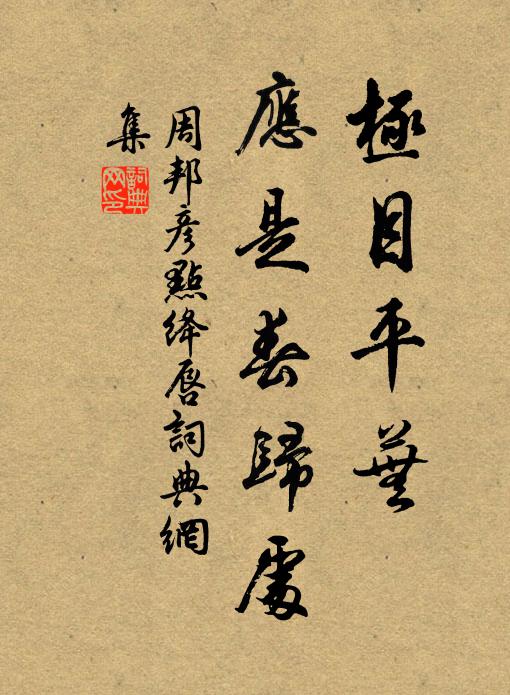 極目平蕪
應是春歸處
周邦彥點絳唇詞典網
集
詞典網印